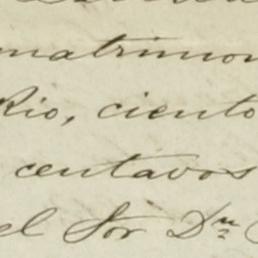 matrimon
Rio, ciento
centavos
el Sor Dn